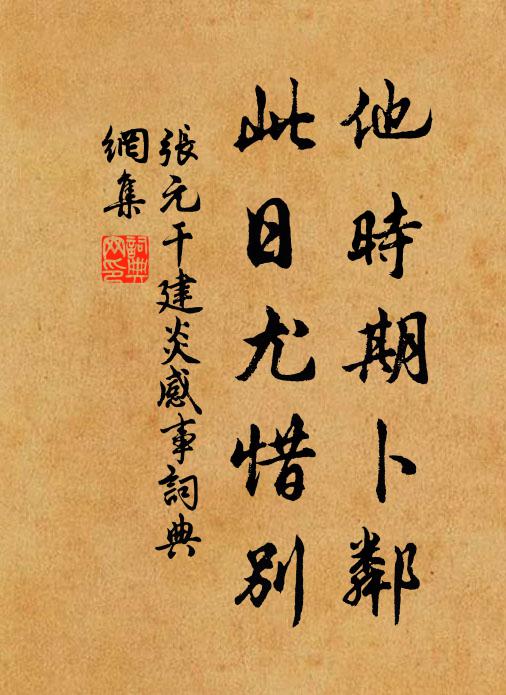 他時期卜鄰
此日尤惜別
張元干建炎感事詞典
網集
詞典網印